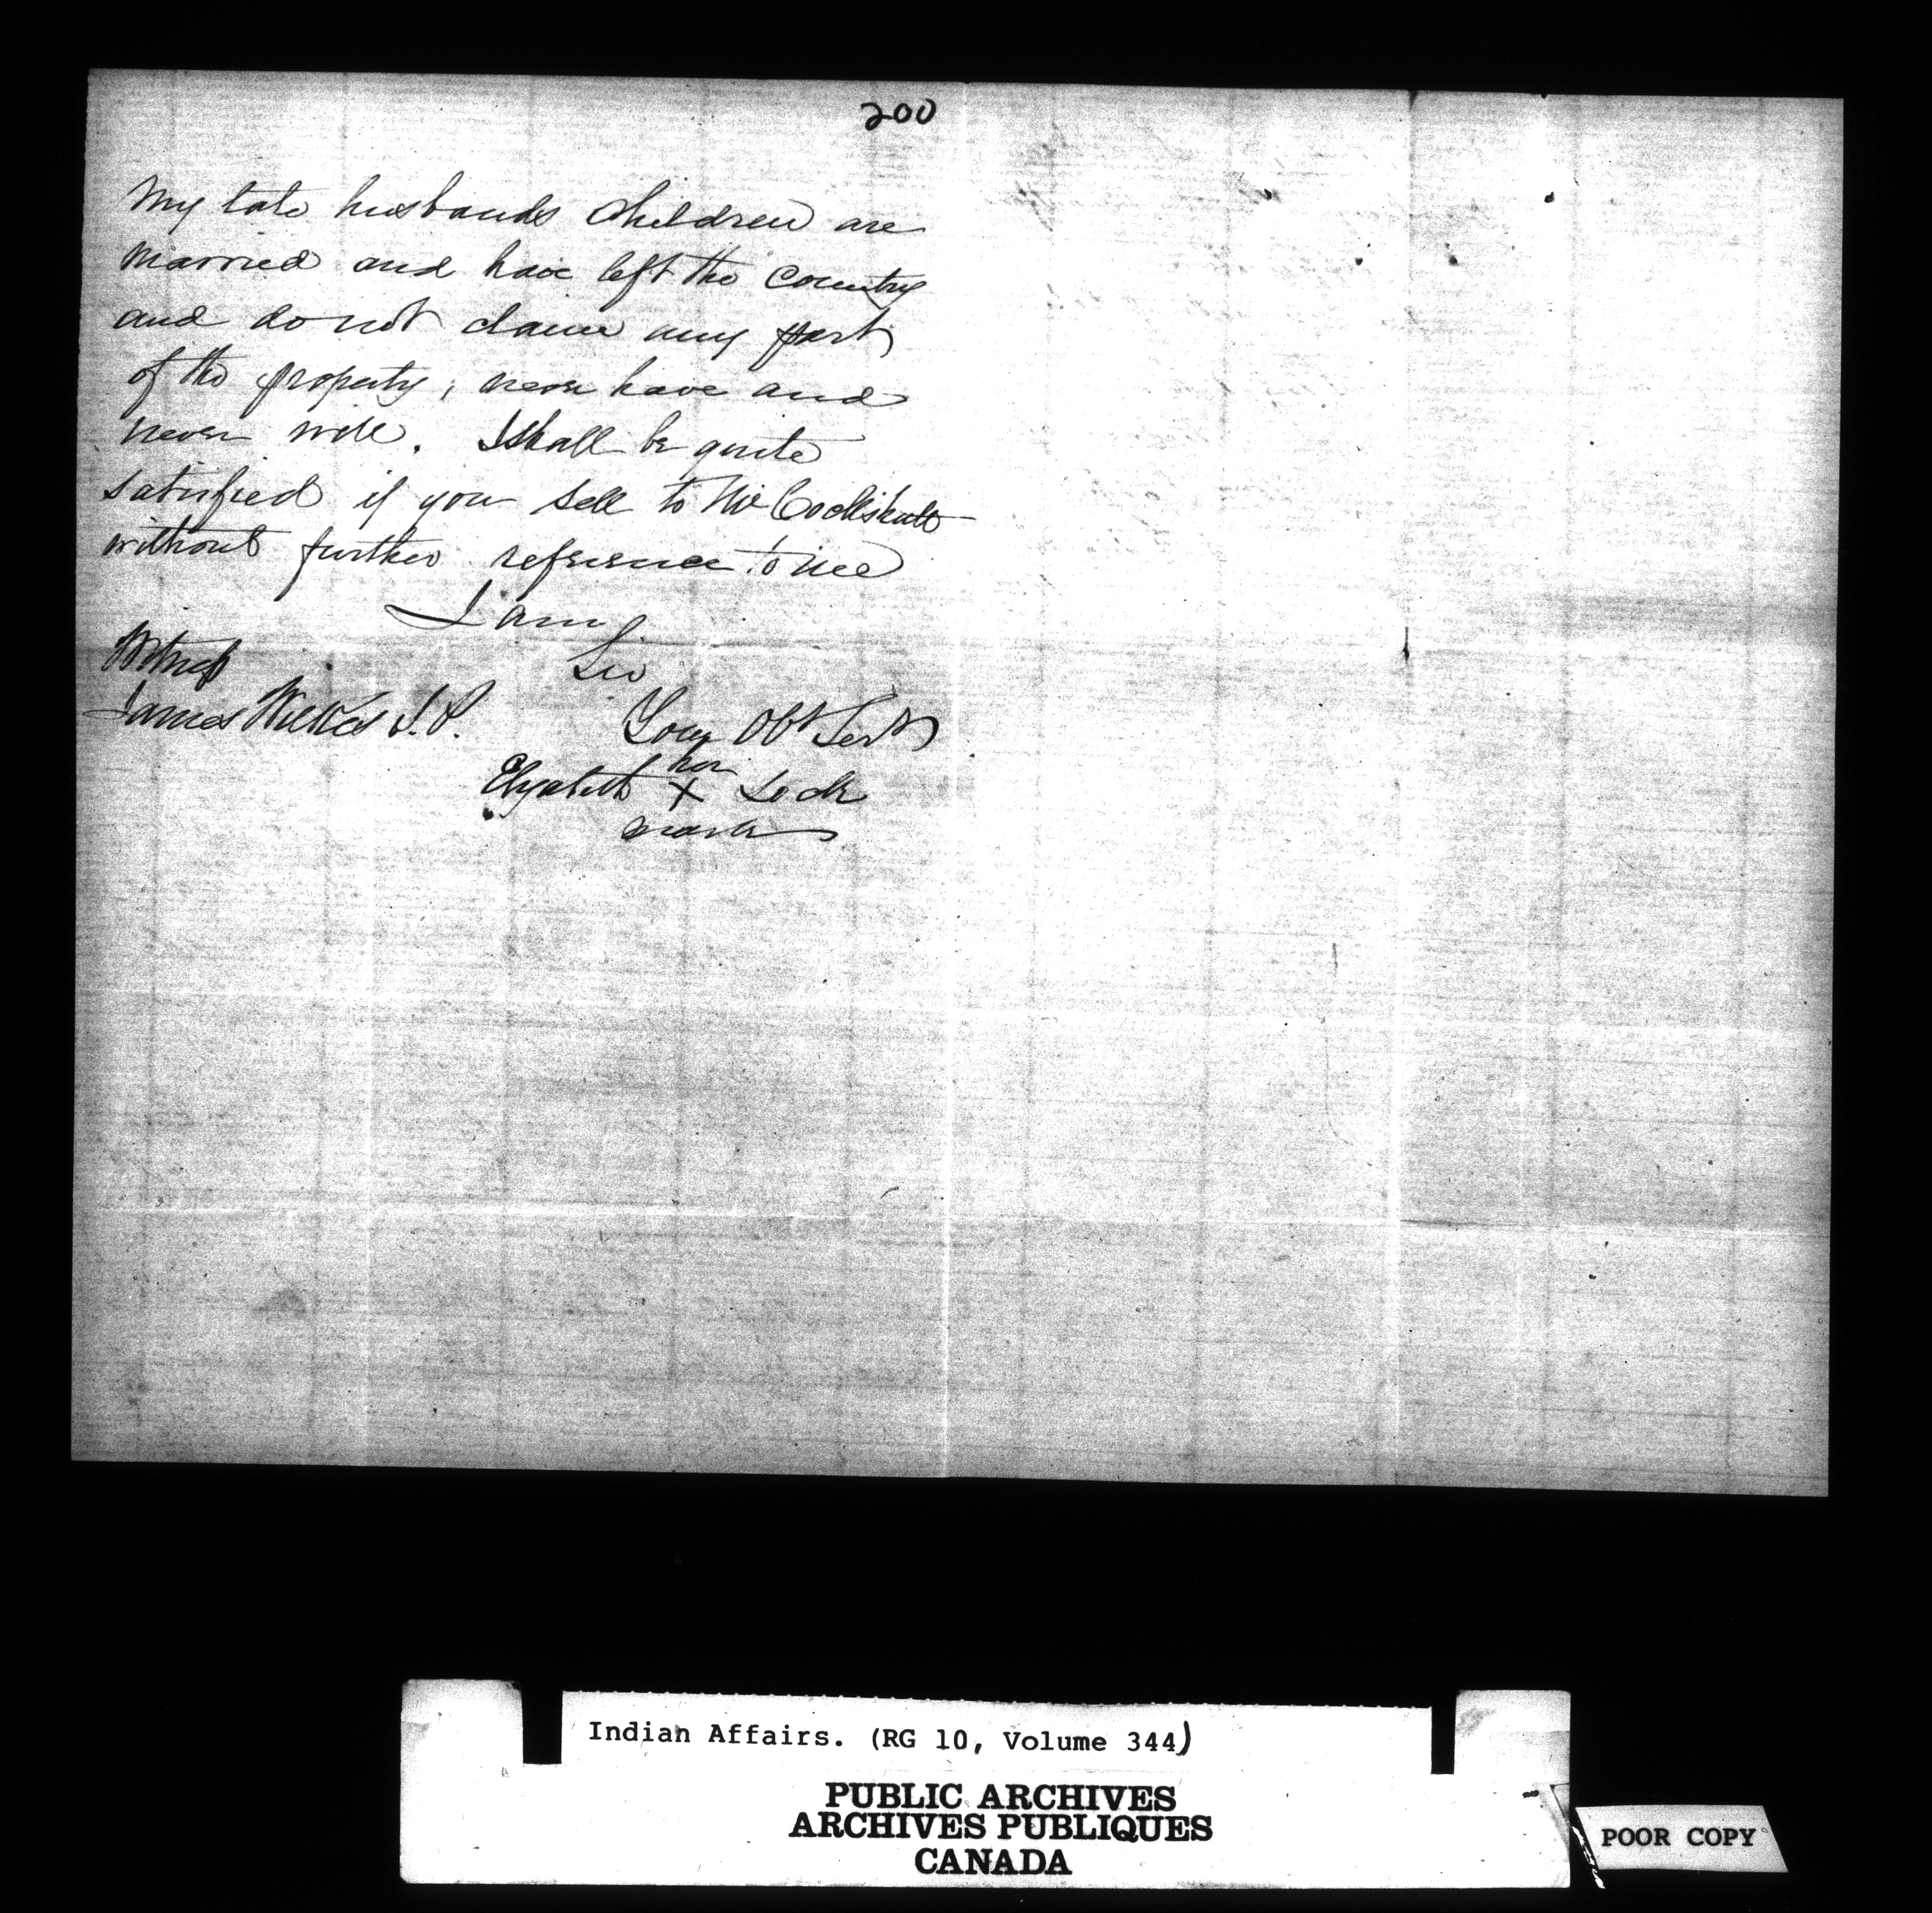 200
My late husbands Children are
Married and have left the Country
and do not claim any part
of the property; never have and
never will. I shall be quite
satisfied if you sell to Mr Cockshutt
without further reference to me
I am
Sir
Witness
James Wilkes J.P.
Your Obt Servt
her
Elizabeth X Lock
mark
Indian Affairs. (RG 10, Volume 344)
PUBLIC ARCHIVES
ARCHIVES PUBLIQUES
CANADA
POOR COPY